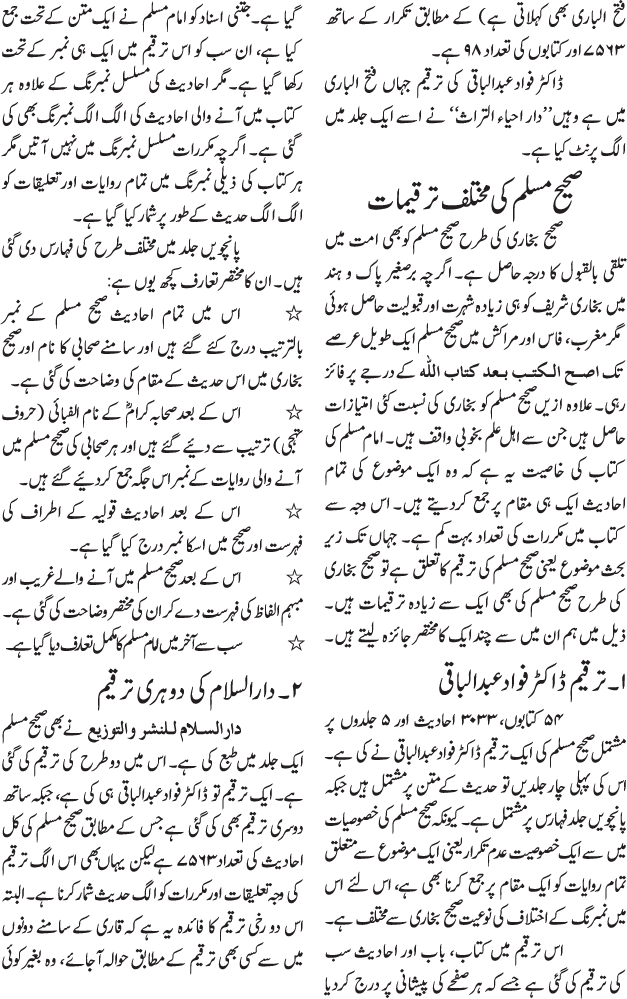 فتح الباری بھی کہلاتی ہے) کے مطابق تکرار کے ساتھ
۷۵۶۳ اور کتابوں کی تعداد ۹۸ ہے۔
ڈاکٹر فواد عبدالباقی کی ترقیم جہاں فتح الباری
میں ہے وہیں ’’دار احیاء التراث‘‘ نے اسے ایک جلد میں
الگ پرنٹ کیا ہے۔
صحیح مسلم کی مختلف ترقیمات
صحیح بخاری کی طرح صحیح مسلم کو بھی امت میں
تلقی بالقبول کا درجہ حاصل ہے۔ اگرچہ برصغیر پاک و ہند
میں بخاری شریف کو ہی زیادہ شہرت اور قبولیت حاصل ہوئی
مگر مغرب، فاس اور مراکش میں صحیح مسلم ایک طویل عرصے
تک اصح الکتب بعد کتاب اللہ کے درجے پر فائز
رہی۔ علاوہ ازیں صحیح مسلم کو بخاری کی نسبت کئی امتیازات
حاصل ہیں جن سے اہل علم بخوبی واقف ہیں۔ امام مسلم کی
کتاب کی خاصیت یہ ہے کہ وہ ایک موضوع کی تمام
احادیث ایک ہی مقام پر جمع کر دیتے ہیں۔ اس وجہ سے
کتاب میں مکررات کی تعداد بہت کم ہے۔ جہاں تک زیر
بحث موضوع یعنی صحیح مسلم کی ترقیم کا تعلق ہے تو صحیح بخاری
کی طرح صحیح مسلم کی بھی ایک سے زیادہ ترقیمات ہیں۔
ذیل میں ہم ان میں سے چند ایک کا مختصر جائزہ لیتے ہیں۔
۱۔ ترقیم ڈاکٹر فواد عبدالباقی
۵۴ کتابوں، ۳۰۳۳ احادیث اور ۵ جلدوں پر
مشتمل صحیح مسلم کی ایک ترقیم ڈاکٹر فواد عبدالباقی نے کی ہے۔
اس کی پہلی چار جلدیں تو حدیث کے متن پر مشتمل ہیں جبکہ
پانچویں جلد فہارس پر مشتمل ہے۔ کیونکہ صحیح مسلم کی خصوصیات
میں سے ایک خصوصیت عدم تکرار یعنی ایک موضوع سے متعلق
تمام روایات کو ایک مقام پر جمع کرنا بھی ہے، اس لئے اس
میں نمبرنگ کے اختلاف کی نوعیت صحیح بخاری سے مختلف ہے۔
اس ترقیم میں کتاب، باب اور احادیث سب
کی ترقیم کی گئی ہے جسے کہ ہر صفحے کی پیشانی پر درج کر دیا
گیا ہے۔ جتنی اسناد کو امام مسلم نے ایک متن کے تحت جمع
کیا ہے، ان سب کو اس ترقیم میں ایک ہی نمبر کے تحت
رکھا گیا ہے۔ مگر احادیث کی مسلسل نمبرنگ کے علاوہ ہر
کتاب میں آنے والی احادیث کی الگ الگ نمبرنگ بھی کی
گئی ہے۔ اگرچہ مکررات مسلسل نمبرنگ میں نہیں آتیں مگر
ہر کتاب کی ذیلی نمبرنگ میں تمام روایات اور تعلیقات کو
الگ الگ حدیث کے طور پر شمار کیا گیا ہے۔
پانچویں جلد میں مختلف طرح کی فہارس دی گئی
ہیں۔ ان کا مختصر تعارف کچھ یوں ہے:
☆ اس میں تمام احادیث صحیح مسلم کے نمبر
بالترتیب درج کئے گئے ہیں اور سامنے صحابی کا نام اور صحیح
بخاری میں اس حدیث کے مقام کی وضاحت کی گئی ہے۔
☆ اس کے بعد صحابہ کرامؓ کے نام الفبائی (حروف
تہجی) ترتیب سے دیئے گئے ہیں اور ہر صحابی کی صحیح مسلم میں
آنے والی روایات کے نمبر اس جگہ جمع کر دیئے گئے ہیں۔
☆ اس کے بعد احادیث قولیہ کے اطراف کی
فہرست اور صحیح میں اسکا نمبر درج کیا گیا ہے۔
☆ اس کے بعد صحیح مسلم میں آنے والے غریب اور
مبہم الفاظ کی فہرست دے کر ان کی مختصر وضاحت کی گئی ہے۔
☆ سب سے آخر میں امام مسلم کا مکمل تعارف دیا گیا ہے۔
۲۔ دارالسلام کی دوہری ترقیم
دار السلام للنشر والتوزیع نے بھی صحیح مسلم
ایک جلد میں طبع کی ہے۔ اس میں دو طرح کی ترقیم کی گئی
ہے۔ ایک ترقیم تو ڈاکٹر فواد عبدالباقی ہی کی ہے، جبکہ ساتھ
دوسری ترقیم بھی کی گئی ہے جس کے مطابق صحیح مسلم کی کل
احادیث کی تعداد ۷۵۶۳ ہے لیکن یہاں بھی اس الگ ترقیم
کی وجہ تعلیقات اور مکررات کو الگ حدیث شمار کرنا ہے۔ البتہ
اس دو رخی ترقیم کا فائدہ یہ ہے کہ قاری کے سامنے دونوں
میں سے کسی بھی ترقیم کے مطابق حوالہ آجائے، وہ بغیر کوئی